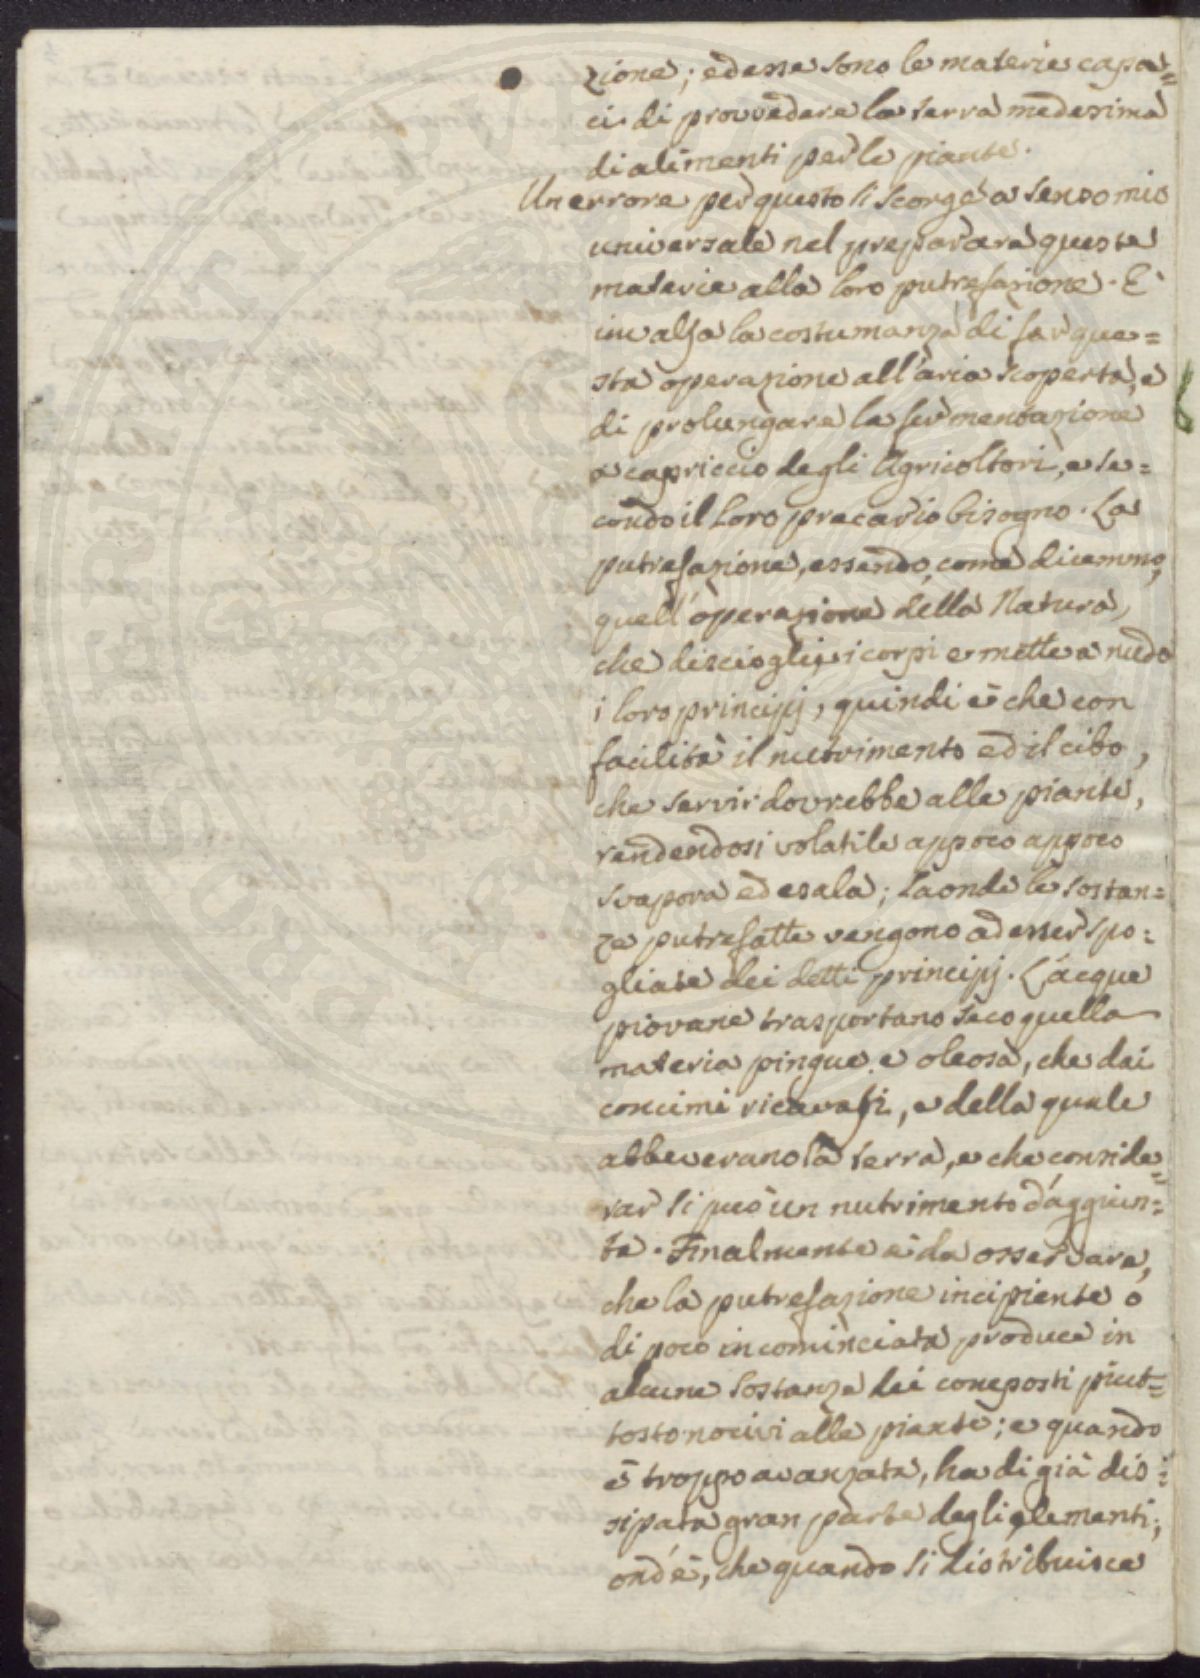 zione; ed esse sono le materie capa=
ci di provvedere la terra medesima
di alimenti per le piante.
Un errore per questo si scorge a senso mio
universale nel preparare queste
materie alla loro putrefazione. E'
invalsa la costumanza di far que=
sta operazione all'aria scoperta, e
di prolungare la fermentazione
a capriccio degli Agricoltori, e se=
condo il loro precario bisogno. La
putrefazione, essendo, come dicemmo,
quell'operazione della Natura,
che discioglie i corpi e mette a nudo
i loro principj, quindi è che con
facilità il nutrimento ed il cibo,
che servir dovrebbe alle piante,
rendendosi volatile appoco appoco
svapora ed esala; laonde le sostan=
ze putrefatte vengono ad esser spo=
gliate dei detti principj. L'acque
piovane trasportano seco quella
materia pingue e oleosa, che dai
concimi ricavasi, e della quale
abbeverano la terra, e che conside=
rar si può un nutrimento d'aggiun=
ta. Finalmente è da osservare,
che la putrefazione incipiente o
di poco incominciata produce in
alcune sostanze dei composti piut=
tosto nocivi alle piante; e quando
è troppo avanzata, ha di già dis=
sipata gran parte degli elementi;
ond'è, che quando si distribuisce